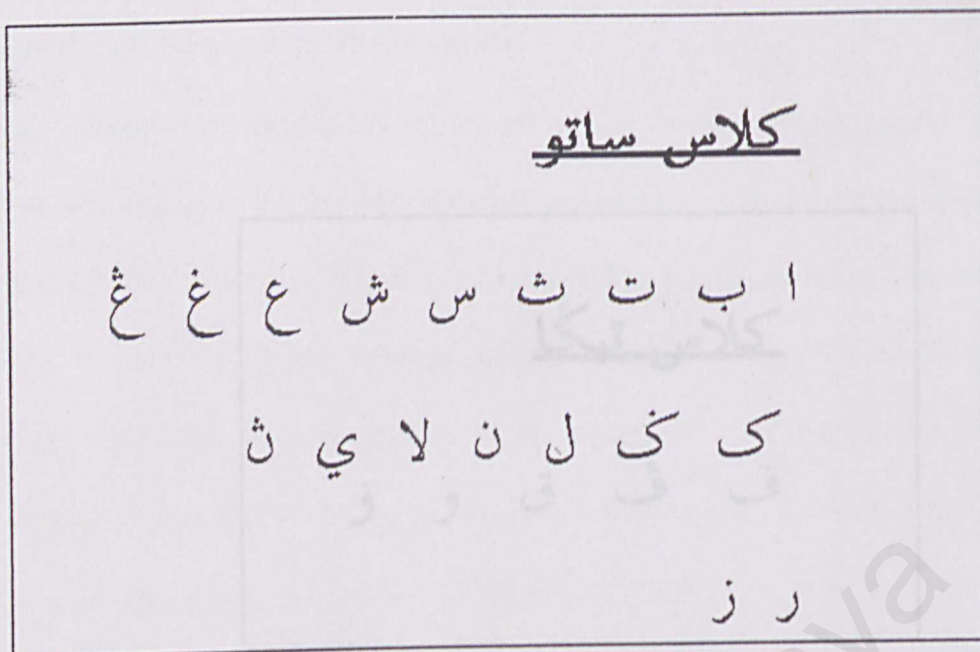 كلاس ساتو
ا ب ت ث س ش ع غ ڠ
ک ݢ ل ن لا ي ڽ
ر ز